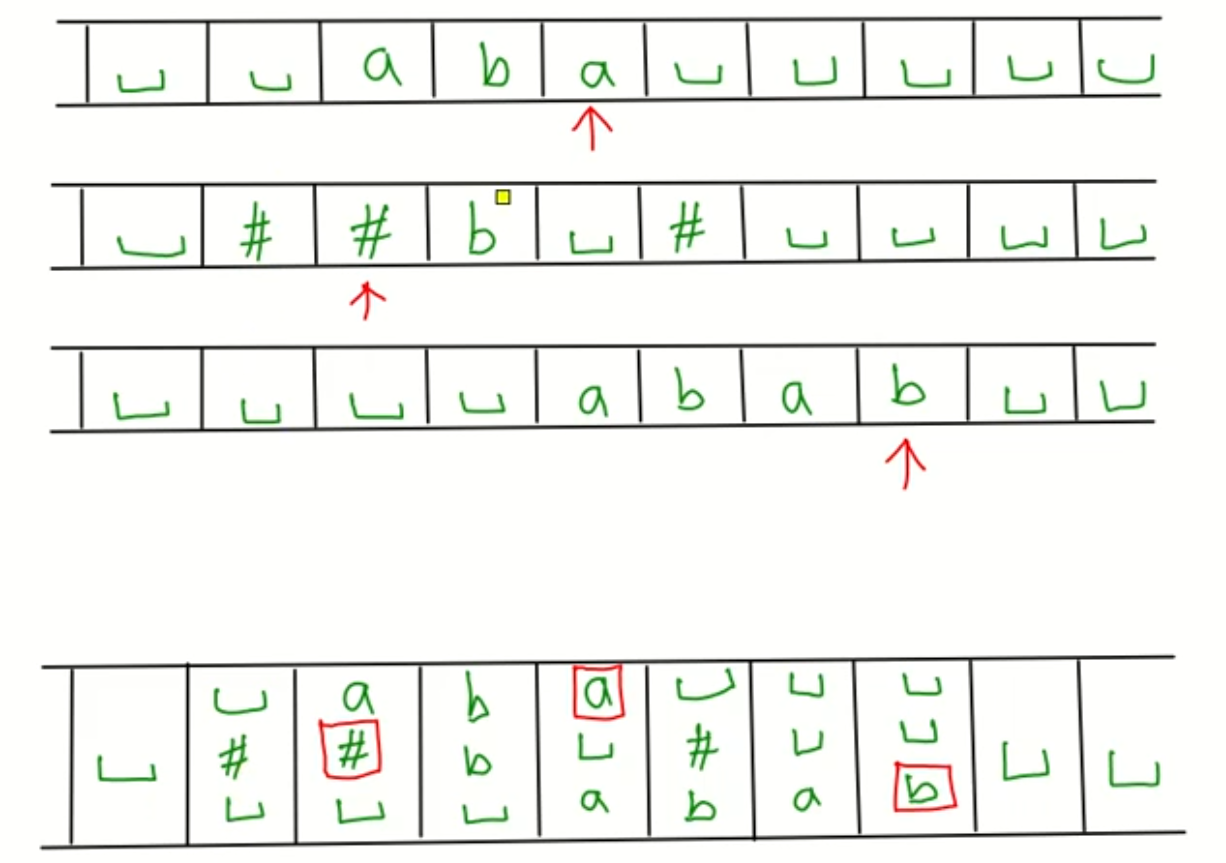 ␣ ␣ a b a ␣ ␣ ␣ ␣ ␣
␣ # # b ␣ # ␣ ␣ ␣ ␣
␣ ␣ ␣ ␣ a b a b ␣ ␣
␣ a b a ␣ ␣ ␣
␣ # # b ␣ # ␣ ␣ ␣ ␣
␣ ␣ ␣ a b a b